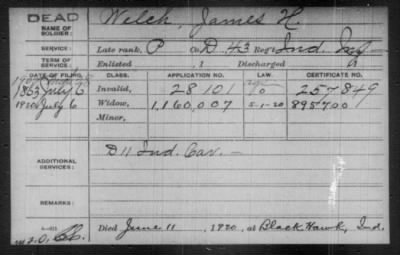 DEAD
NAME OF SOLDIER: Welch, James H.
SERVICE: Late rank, P Co. D. 43 Reg't Ind. Inf
TERM OF SERVICE: Enlisted , 1 Discharged
DATE OF FILING. CLASS. APPLICATION NO. LAW. CERTIFICATE NO.
1863 July 6 Invalid, 28101 257849
1920 July 6 Widow, 1,160,007 5-1-20 895700
Minor,
ADDITIONAL SERVICES: D 11 Ind. Cav. —
REMARKS:
Died June 11, 1920, at Black Hawk, Ind.